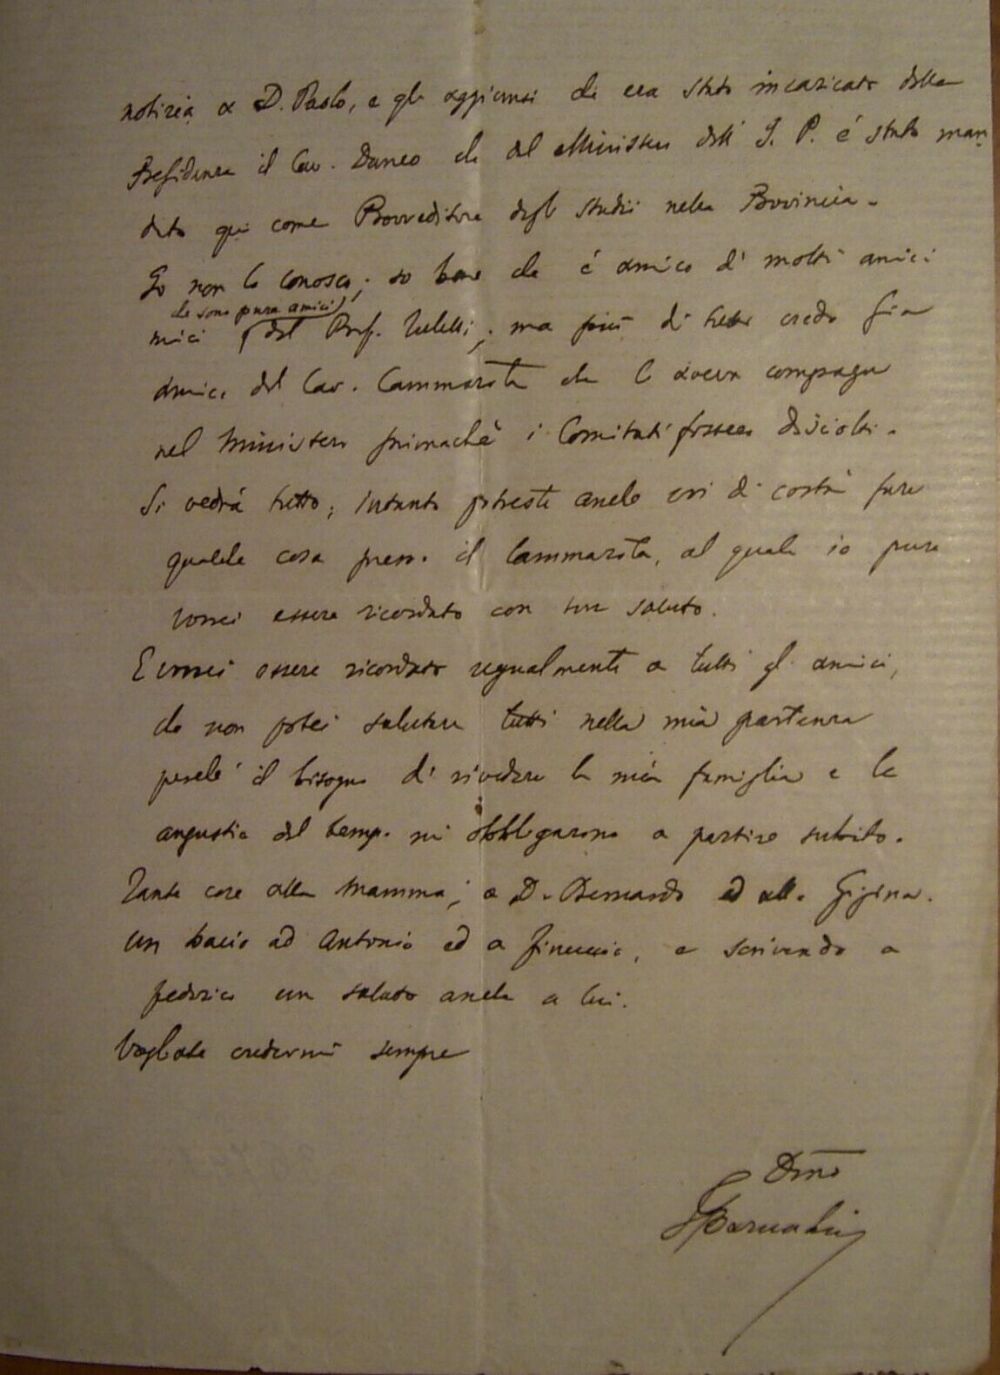 notizia a D. Paolo, e gli aggiunsi che era stato incaricato della
Presidenza il Cav. Daneo che dal Ministero dell' I. P. é stato man
dato qui come Provveditore degli studii nella Provincia.
Io non lo conosco; so bene che é amico di molti amici
che sono pure amici)
miei ( del Prof. ; ma più di tutti credo sia
amico del Cav. Cammarota che l'aveva compagno
nel Ministero primachè i Comitati fossero disciolti.
Si vedrà tutto; intanto potreste anche voi di costà fare
qualche cosa presso il Cammarota, al quale io pure
vorrei essere ricordato con un saluto.
E vorrei essere ricordato egualmente a tutti gli amici,
che non potei salutare tutti nella mia partenza
perché il bisogno di rivedere la mia famiglia e le
angustie del tempo mi obbligarono a partire subito.
Tante cose alla Mamma, a D. Bernardo ed alla Gigina.
Un bacio ad Antonio ed a , e scrivendo a
Federico un saluto anche a lui.
Vogliate credermi sempre
Dmo
FBarnabei